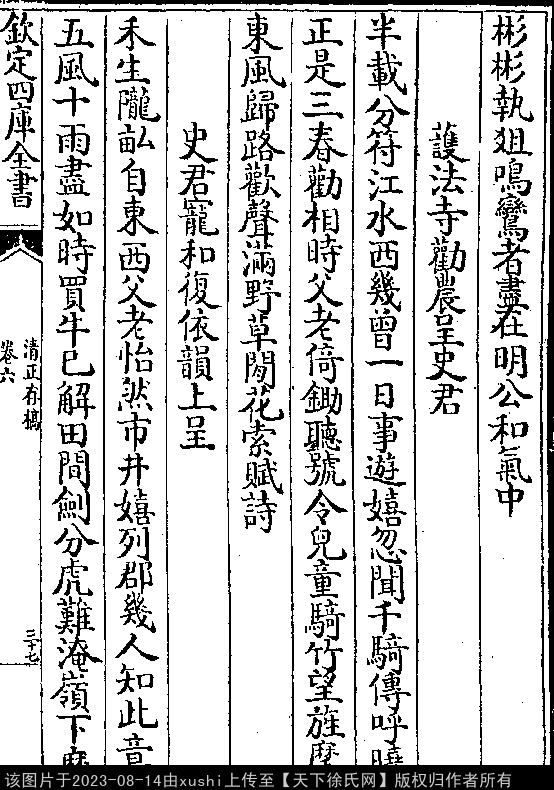 彬彬執狙鳴鸞者盡在明公和氣中
護法寺勸農呈史君
半載分符江水西幾曾一日事遊嬉忽聞千騎傳呼曉
正是三春勸相時父老倚鋤聽號令兒童騎竹望旌麾
東風歸路歡聲滿野草閒花索賦詩
史君寵和復依韻上呈
禾生隴畝自東西父老怡然市井嬉列郡幾人知此意
五風十雨盡如時買牛已解田間劍分虎難淹嶺下麾
欽定四庫全書
清正存稿
卷六
三十七
该图片于2023-08-14由xushi上传至【天下徐氏网】版权归作者所有